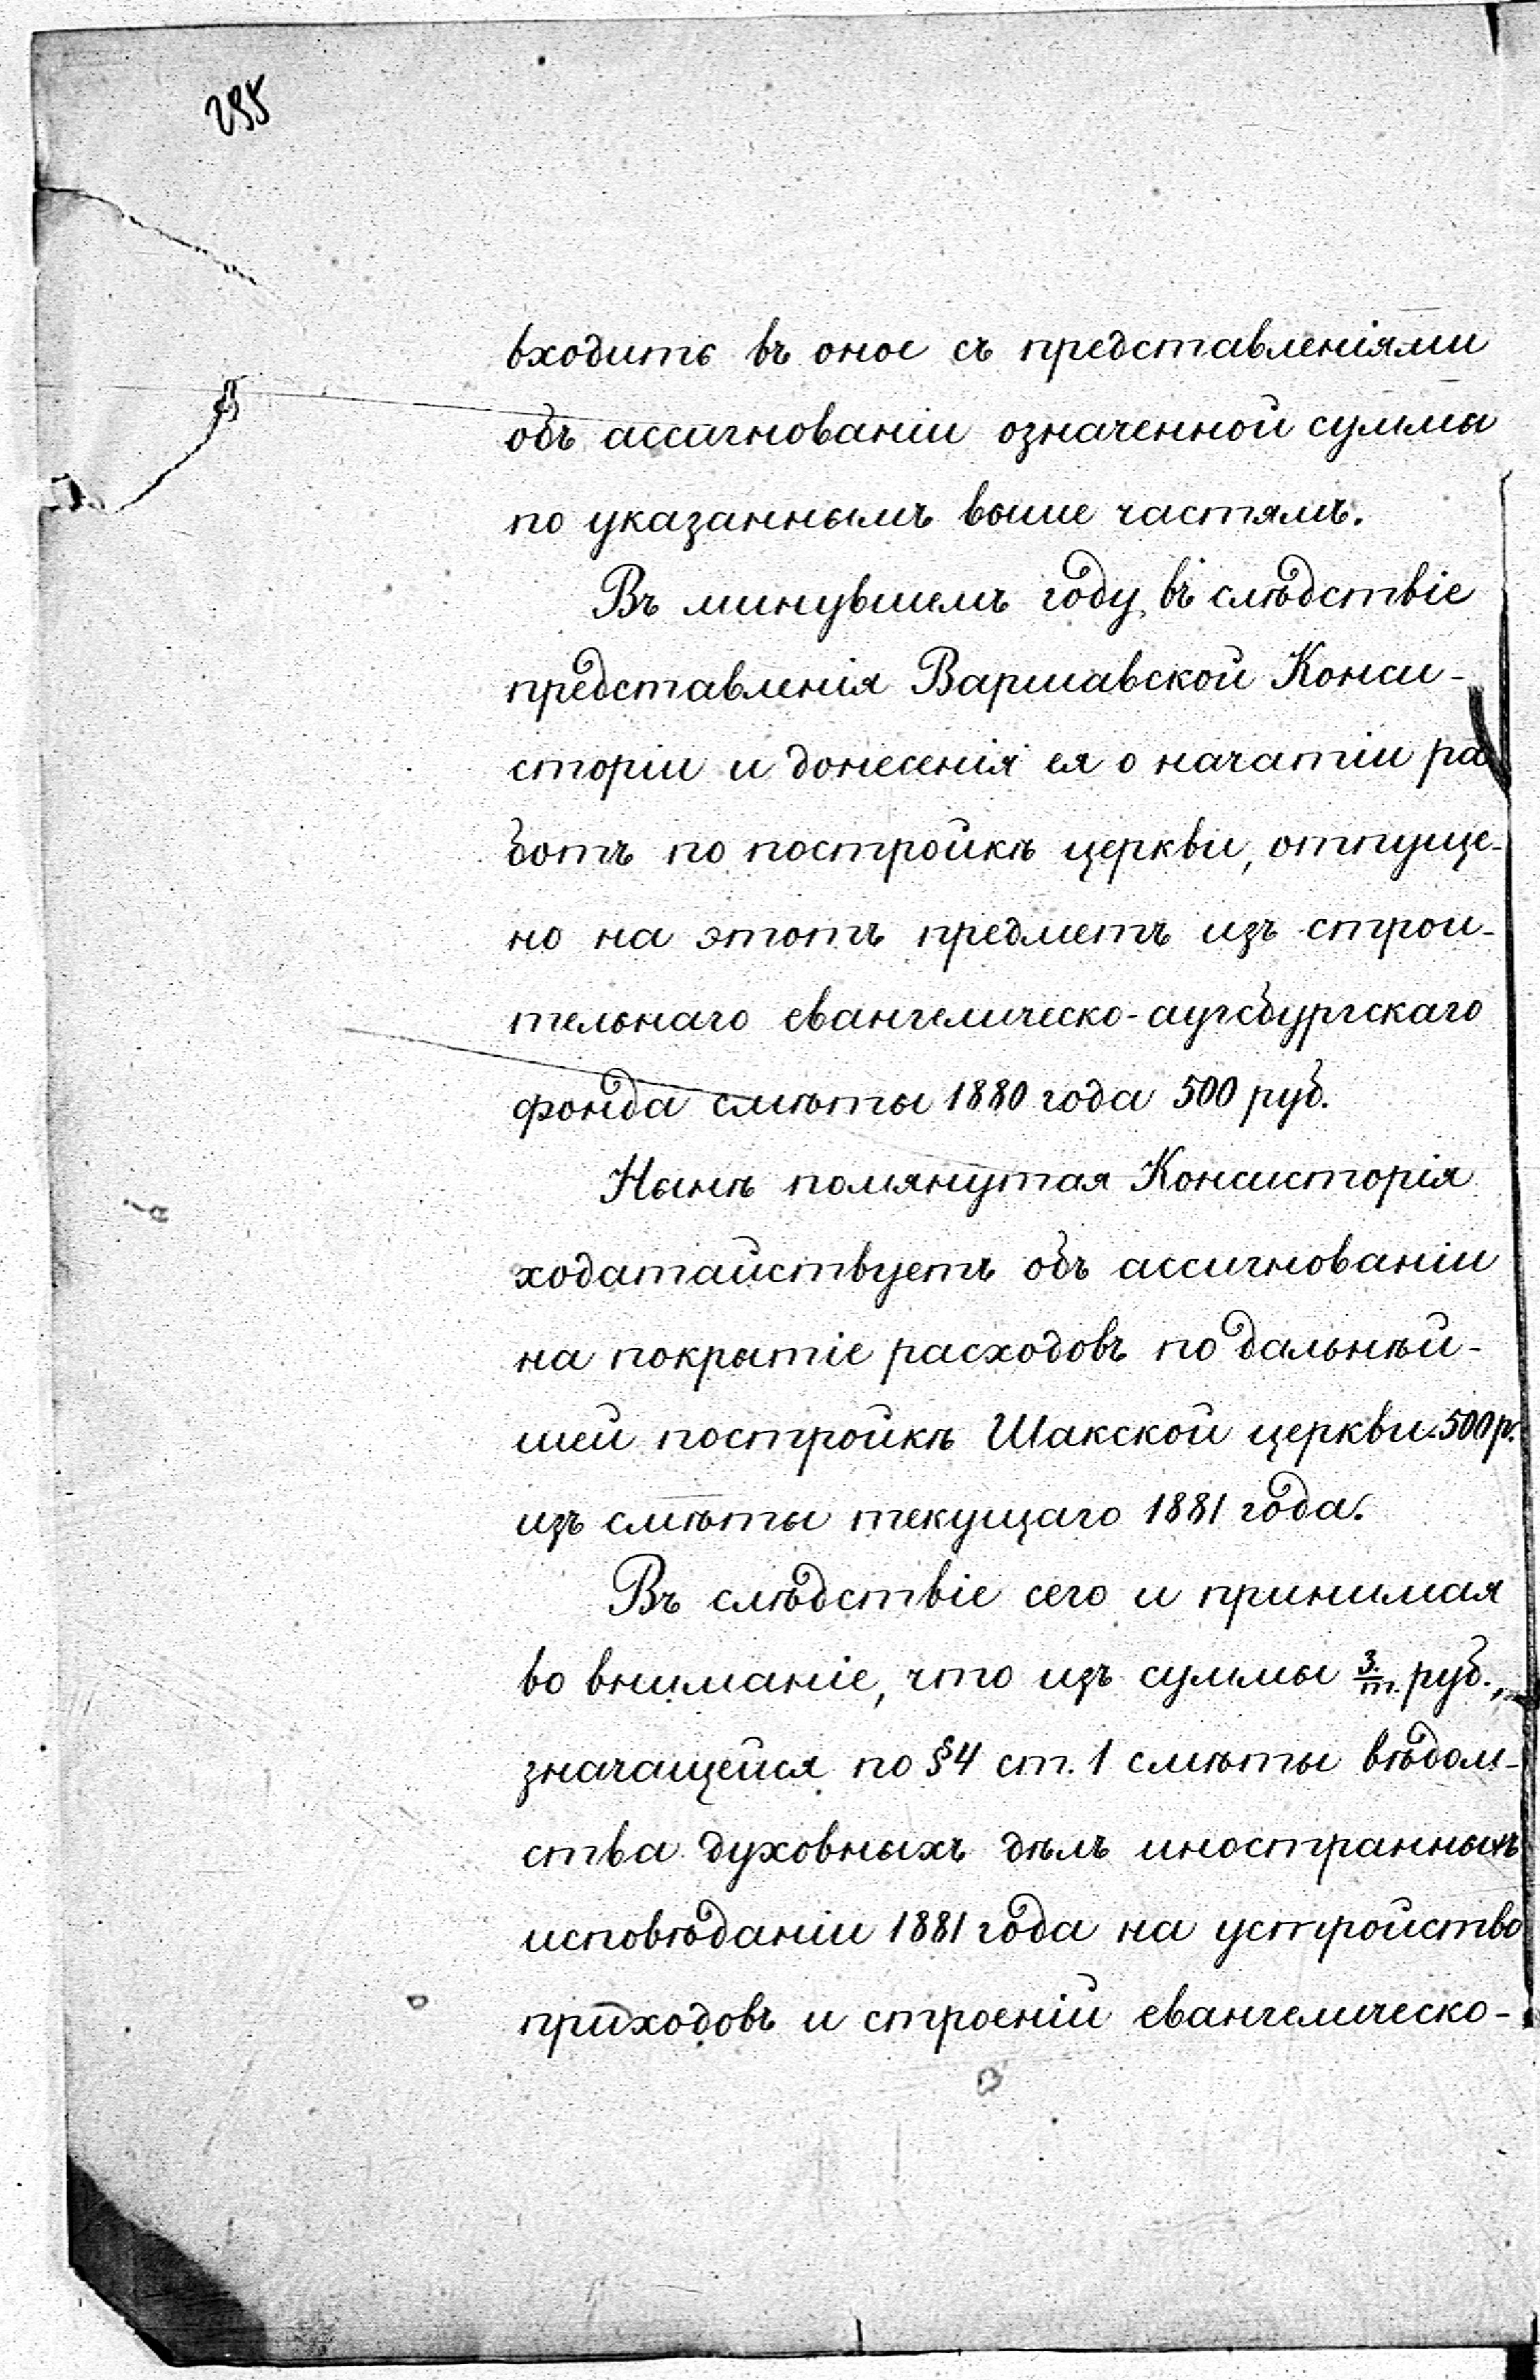 295
входить въ оное съ представленіями
объ ассигнованіи означенной суммы
по указаннымъ выше частямъ.
Въ минувшемъ году въ слѣдствіе
представленія Варшавской Конси-
сторіи и донесенія ея о начатіи ра
ботъ по постройкѣ церкви, отпуще-
но на этотъ предметъ изъ строи-
тельнаго евангелическо-аугсбургскаго
фонда смѣты 1880 года 500 руб.
Нынѣ помянутая Консисторія
ходатайствуетъ объ ассигнованіи
на покрытіе расходовъ по дальнѣй-
шей постройкѣ Шакской церкви 500 р.
изъ смѣты текущаго 1881 года.
Въ слѣдствіе сего и принимая
во вниманіе, что изъ суммы 3/т. руб.,
значащейся по §4 ст. 1 смѣты вѣдом-
ства духовныхъ дѣлъ иностранныхъ
исповѣданій 1881 года на устройство
приходовъ и строеній евангелическо-